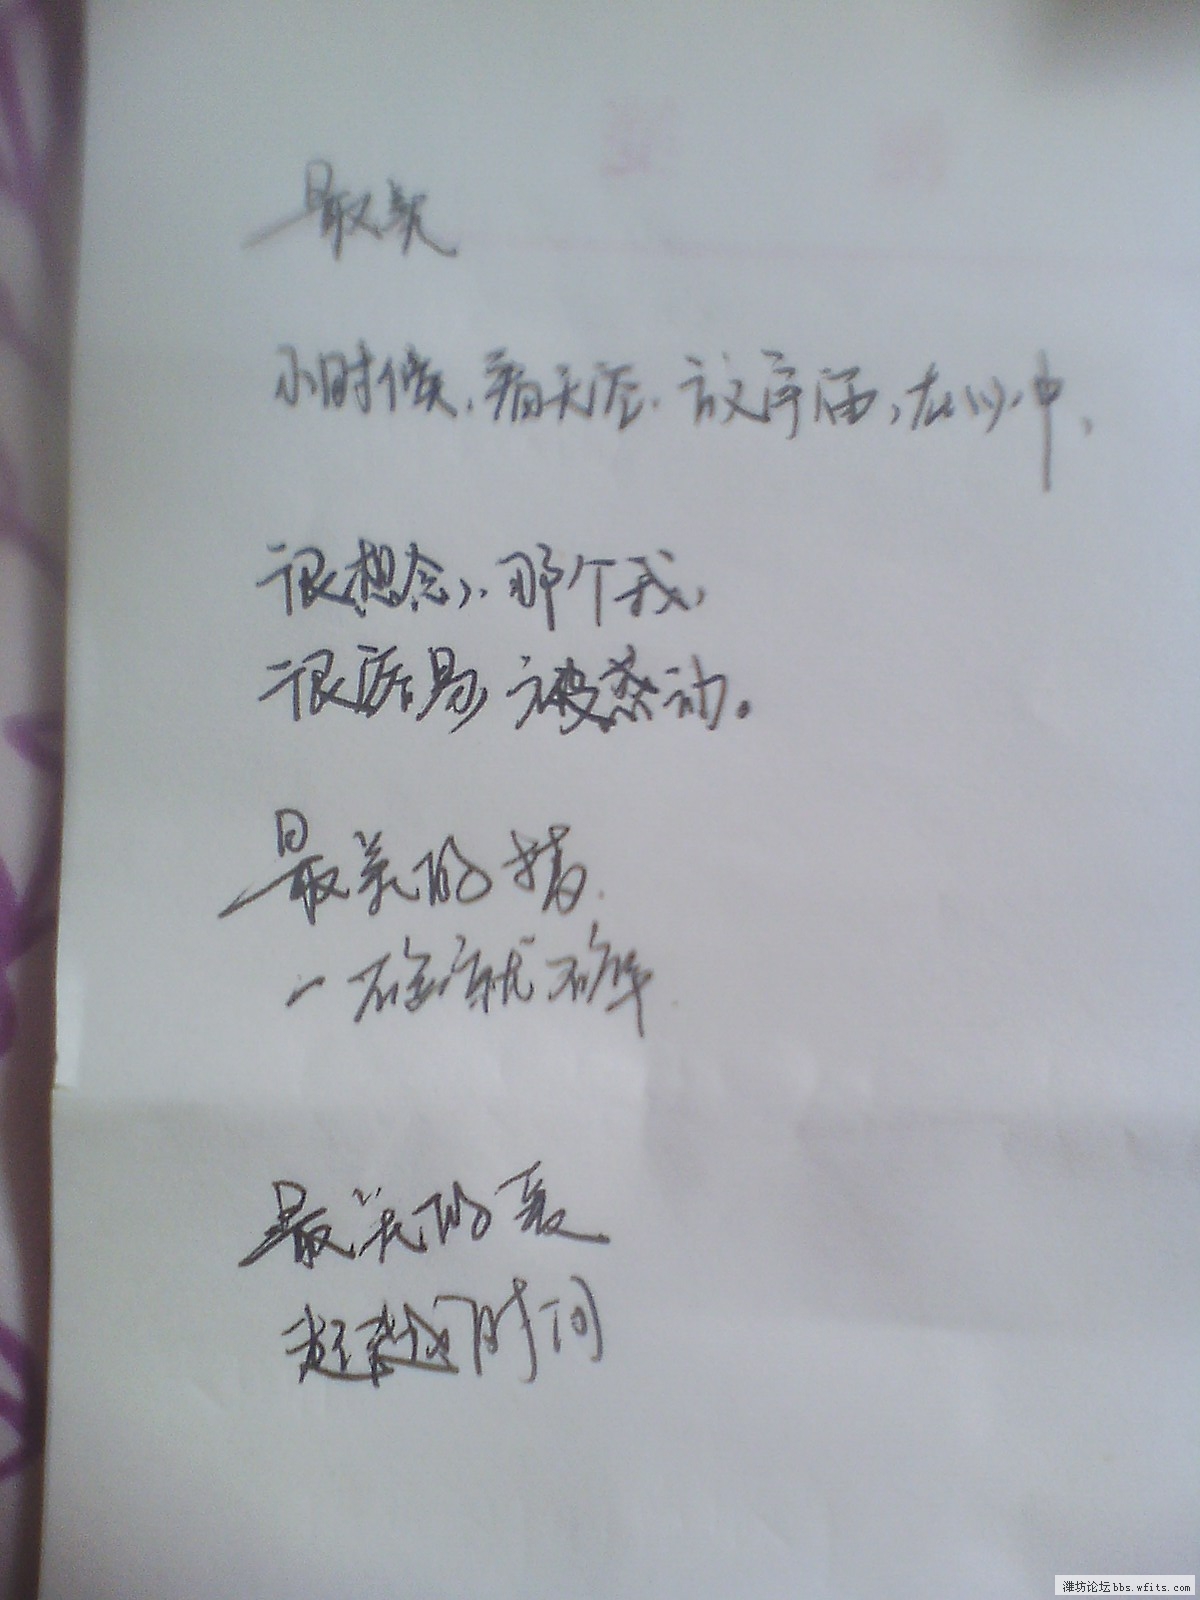 最美
小时候,看天空,放宇宙,在心中,
很想念,那个我,
很容易被感动。
最美的
一 就不
最美的爱
超越时间
潍坊论坛bbs.wfits.com